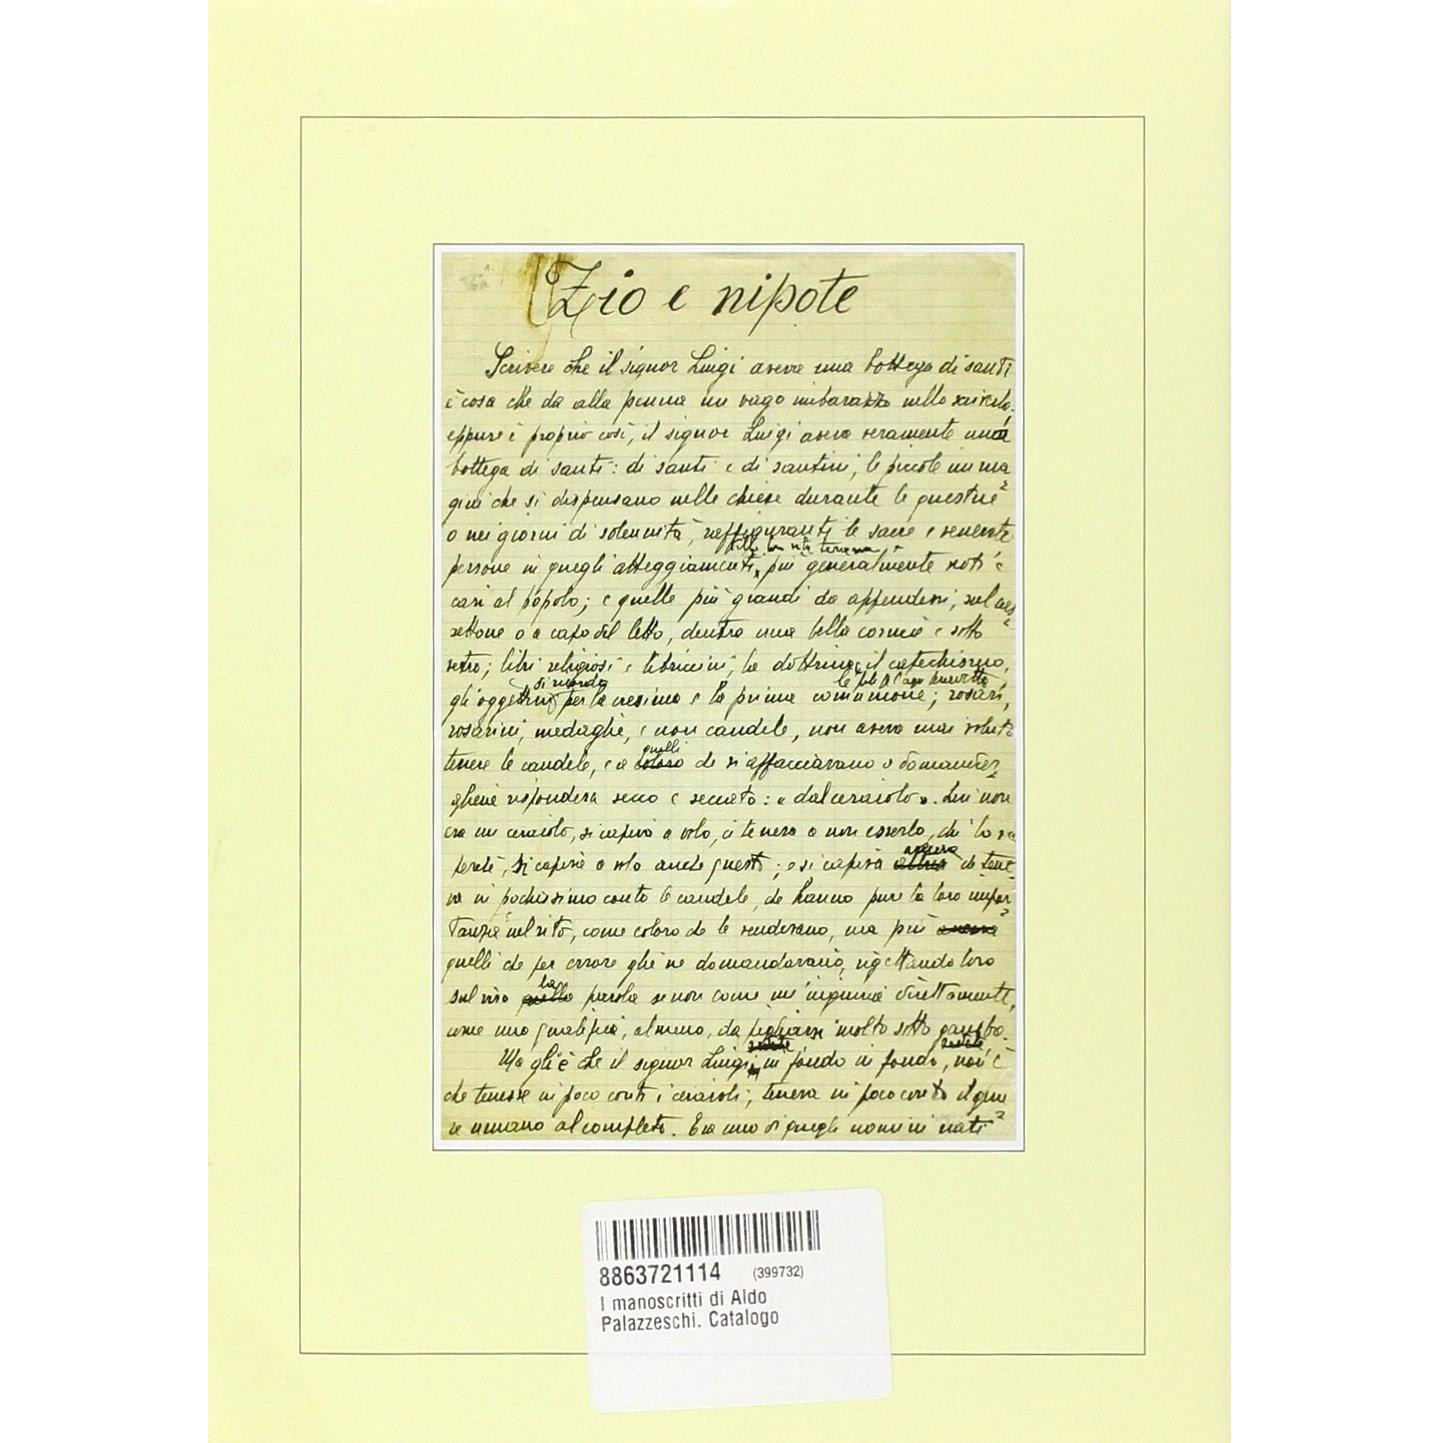 Zio e nipote
Scrivere che il signor Luigi aveva una bottega di santi
è cosa che da alla penna un vago imbarazzo nello scriverla;
eppure è proprio così, il signor Luigi aveva veramente una
bottega di santi: di santi e di santini, le piccole imma
gini che si dispensano nelle chiese durante le questue
o nei giorni di solennità, raffiguranti le sacre e venerate
della lor vita terrena
persone in quegli atteggiamenti, più generalmente noti e
cari al popolo; e quelle più grandi da appendersi, sul cas
settone o a capo del letto, dentro una bella cornice e sotto
vetro; libri religiosi e libriccini, la dottrina, il catechismo,
si ricorda
gli oggettini per la cresima e la prima comunione; rosari,
rosarini, medaglie, e non candele, non aveva mai voluto
tenere le candele, e a coloro che si affacciavano a domandar
quelli
gliene rispondeva secco e seccato: «dal ceraiolo». Lui non
era un ceraiolo, si capiva a volo, ci teneva a non esserlo, chi lo sa
perché, si capiva a volo anche questo; e si capiva che tene
ancora
va in pochissimo conto le candele, che hanno pure la loro impor
tanza nel rito, come coloro che le vendevano, ma più ancora
quelli che per errore gliene domandavano, rigettando loro
sul viso quella parola se non come un'ingiuria direttamente,
la
come una qualifica, almeno, da pigliarsi molto sotto gamba.
Ma gli è che il signor Luigi, in fondo in fondo, non è
che tenesse in poco conto i ceraioli; teneva in poco conto il gene
re umano al completo. Era uno di quegli uomini nati
8863721114 (399732)
I manoscritti di Aldo
Palazzeschi. Catalogo